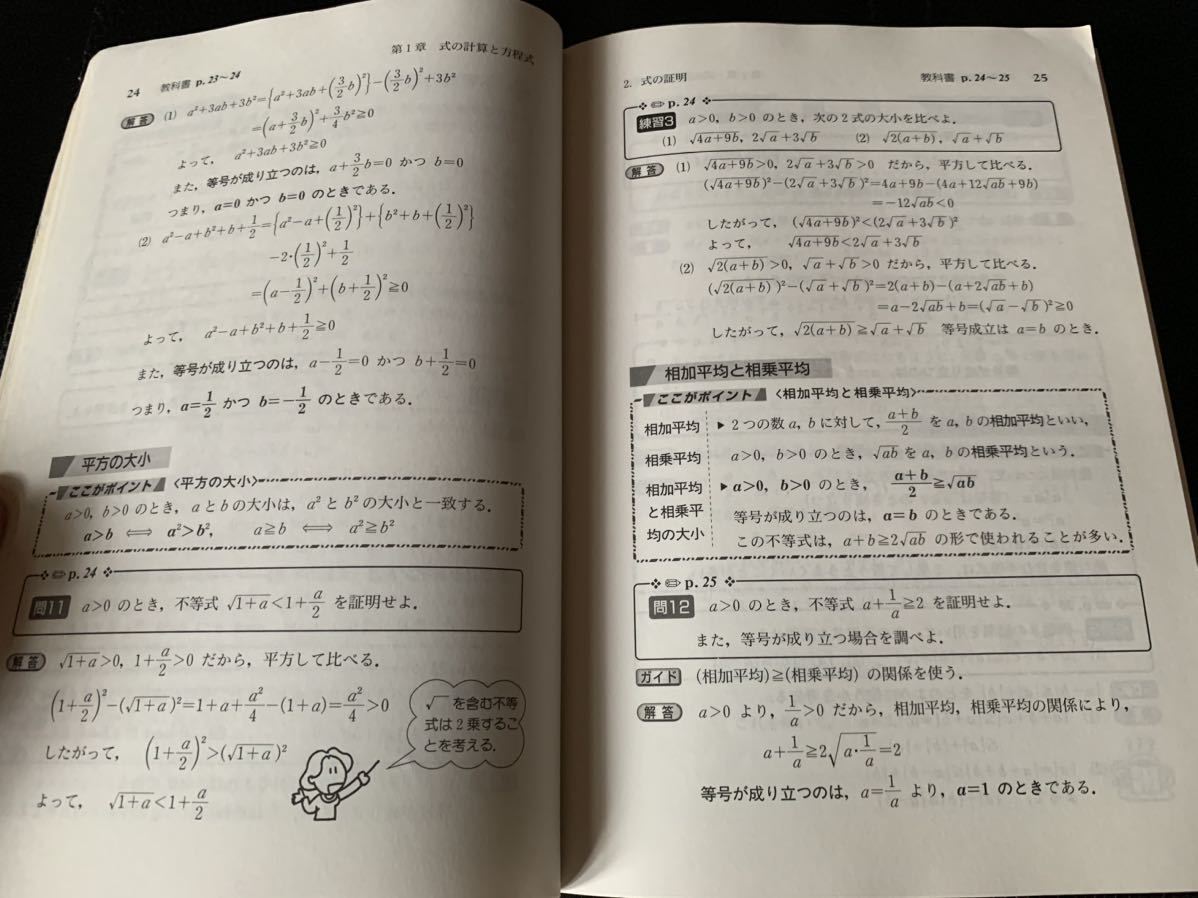 24 教科書 p. 23〜24 第1章 式の計算と方程式
解答 (1) a²+3ab+3b²={a²+3ab+(3/2 b)²}−(3/2 b)²+3b²
=(a+3/2 b)²+3/4 b²≧0
よって, a²+3ab+3b²≧0
また, 等号が成り立つのは, a+3/2 b=0 かつ b=0
つまり, a=0 かつ b=0 のときである.
(2) a²−a+b²+b+1/2={a²−a+(1/2)²}+{b²+b+(1/2)²}
−2·(1/2)²+1/2
=(a−1/2)²+(b+1/2)²≧0
よって, a²−a+b²+b+1/2≧0
また, 等号が成り立つのは, a−1/2=0 かつ b+1/2=0
つまり, a=1/2 かつ b=−1/2 のときである.
平方の大小
ここがポイント 〈平方の大小〉
a>0, b>0 のとき, aとbの大小は, a²とb²の大小と一致する.
a>b ⟺ a²>b², a≧b ⟺ a²≧b²
p. 24
問11 a>0 のとき, 不等式 √(1+a)<1+a/2 を証明せよ.
解答 √(1+a)>0, 1+a/2>0 だから, 平方して比べる.
(1+a/2)²−(√(1+a))²=1+a+a²/4−(1+a)=a²/4>0
したがって, (1+a/2)²>(√(1+a))²
よって, √(1+a)<1+a/2
√ を含む不等
式は2乗するこ
とを考える.
2. 式の証明 教科書 p. 24〜25 25
p. 24
練習3 a>0, b>0 のとき, 次の2式の大小を比べよ.
(1) √(4a+9b), 2√a+3√b (2) √(2(a+b)), √a+√b
解答 (1) √(4a+9b)>0, 2√a+3√b>0 だから, 平方して比べる.
(√(4a+9b))²−(2√a+3√b)²=4a+9b−(4a+12√(ab)+9b)
=−12√(ab)<0
したがって, (√(4a+9b))²<(2√a+3√b)²
よって, √(4a+9b)<2√a+3√b
(2) √(2(a+b))>0, √a+√b>0 だから, 平方して比べる.
(√(2(a+b)))²−(√a+√b)²=2(a+b)−(a+2√(ab)+b)
=a−2√(ab)+b=(√a−√b)²≧0
したがって, √(2(a+b))≧√a+√b 等号成立は a=b のとき.
相加平均と相乗平均
ここがポイント 〈相加平均と相乗平均〉
相加平均 ▶ 2つの数 a, b に対して, (a+b)/2 を a, b の相加平均といい,
相乗平均 a>0, b>0 のとき, √(ab) を a, b の相乗平均という.
相加平均 ▶ a>0, b>0 のとき, (a+b)/2≧√(ab)
と相乗平 等号が成り立つのは, a=b のときである.
均の大小 この不等式は, a+b≧2√(ab) の形で使われることが多い.
p. 25
問12 a>0 のとき, 不等式 a+1/a≧2 を証明せよ.
また, 等号が成り立つ場合を調べよ.
ガイド (相加平均)≧(相乗平均) の関係を使う.
解答 a>0 より, 1/a>0 だから, 相加平均, 相乗平均の関係により,
a+1/a≧2√(a·1/a)=2
等号が成り立つのは, a=1/a より, a=1 のときである.